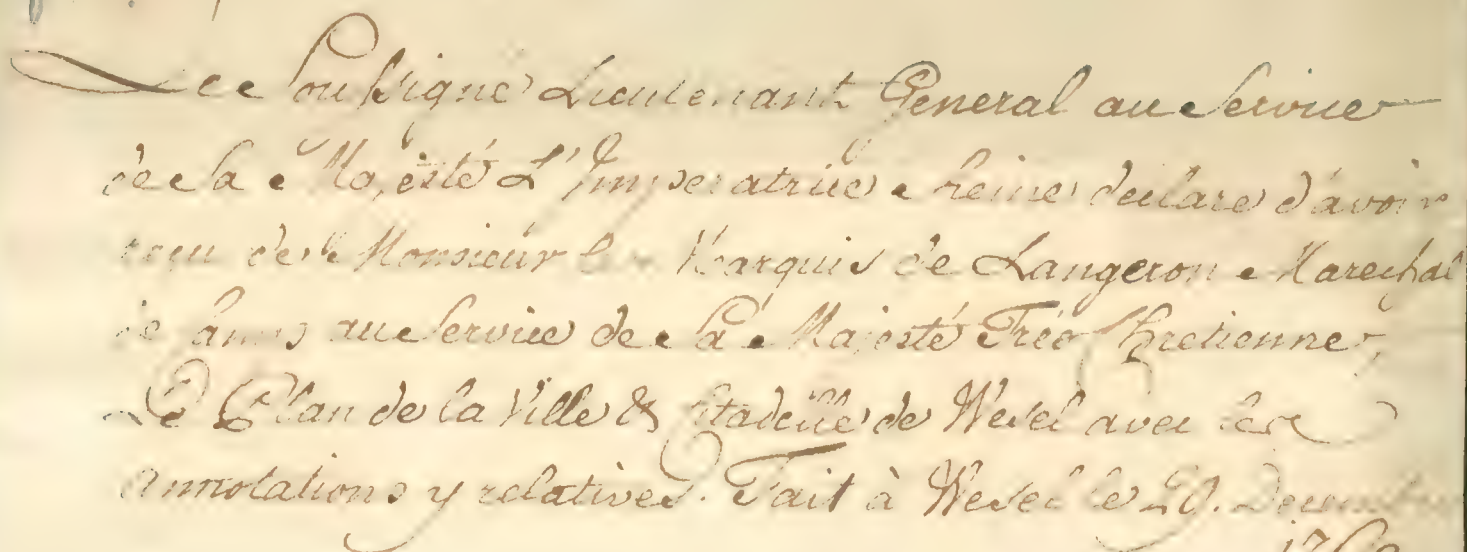 Le Soussigné Lieutenant General au Service
de Sa Majesté L'Imperatrice Reine declare d'avoir
reçu de Monsieur le Marquis de Langeron Marechal
de Camps au Service de Sa Majesté Tres Chretienne,
Le Plan de la Ville & Citadelle de Wesel avec les
annotations y relatives. Fait à Wesel le 29. Decembre